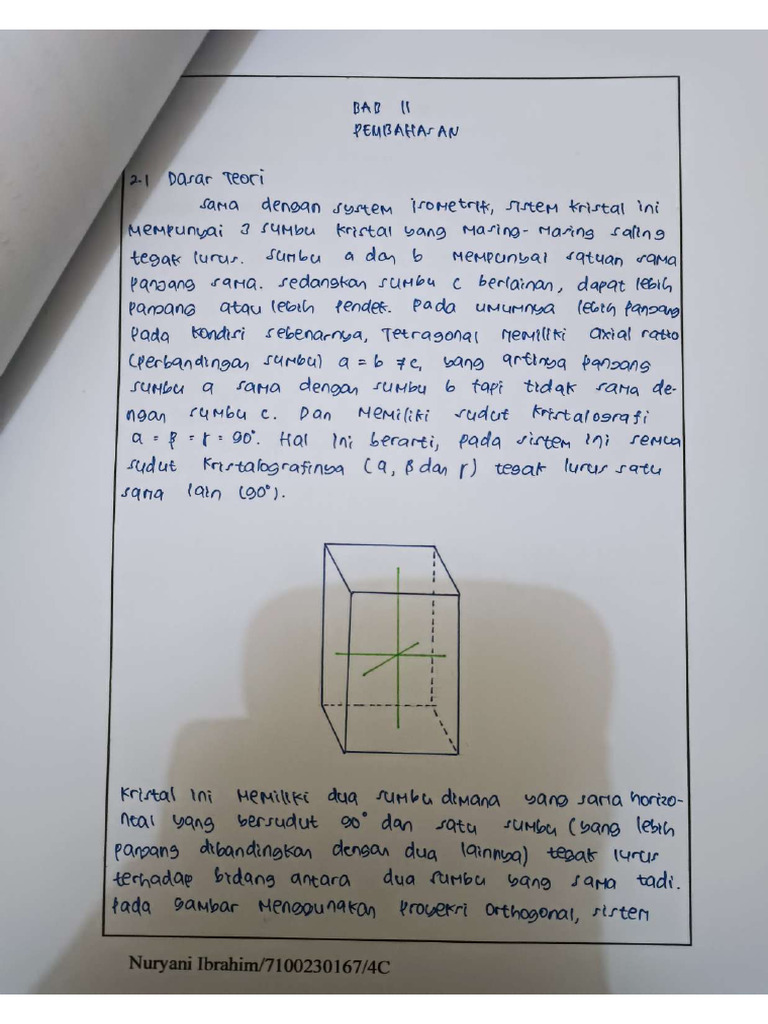 BAB II
PEMBAHASAN
2.1 Dasar Teori
sama dengan system isometrik, sistem kristal ini
mempunyai 3 sumbu kristal yang masing-masing saling
tegak lurus. sumbu a dan b mempunyai satuan sama
panjang sama. sedangkan sumbu c berlainan, dapat lebih
panjang atau lebih pendek. Pada umumnya lebih panjang
Pada kondisi sebenarnya, Tetragonal memiliki axial ratio
(perbandingan sumbu) a = b ≠ c, yang artinya panjang
sumbu a sama dengan sumbu b tapi tidak sama de-
ngan sumbu c. Dan memiliki sudut kristalografi
α = β = γ = 90°. Hal ini berarti, pada sistem ini semua
sudut kristalografinya (α, β dan γ) tegak lurus satu
sama lain (90°).
Kristal ini memiliki dua sumbu dimana yang sama horizo-
ntal yang bersudut 90° dan satu sumbu (yang lebih
panjang dibandingkan dengan dua lainnya) tegak lurus
terhadap bidang antara dua sumbu yang sama tadi.
Pada gambar menggunakan proyeksi orthogonal, sistem
Nuryani Ibrahim/7100230167/4C